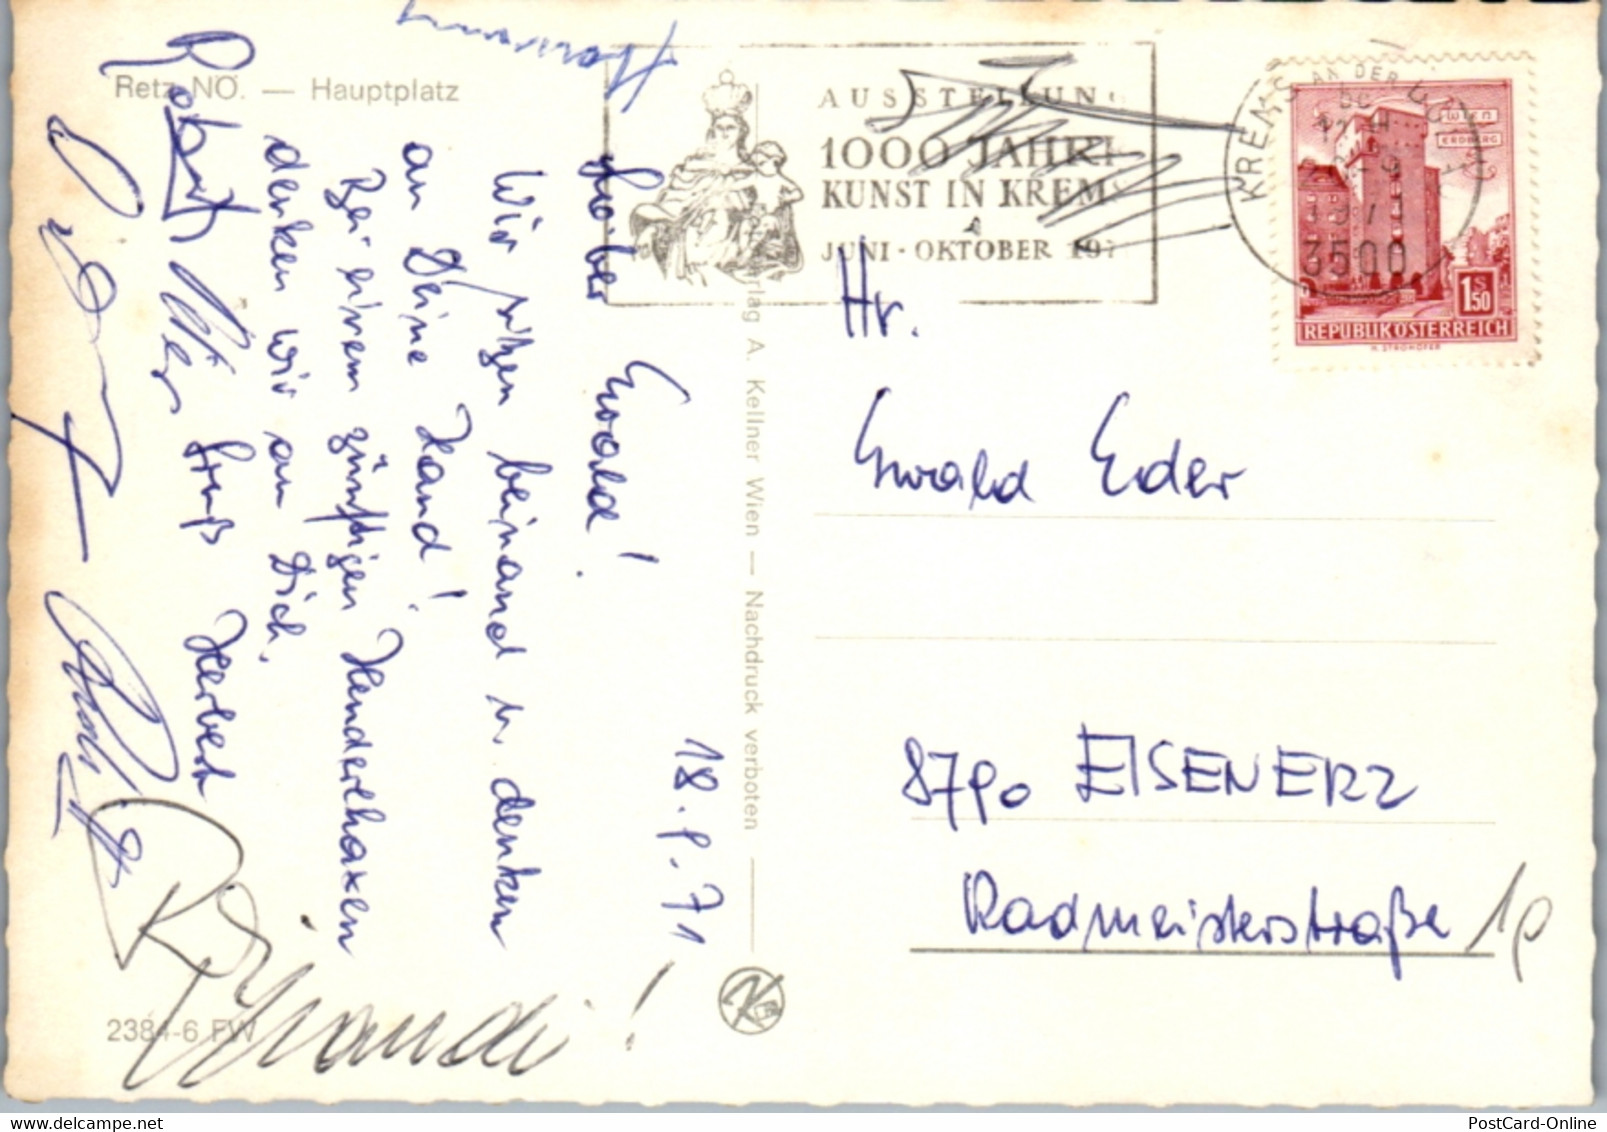 Retz NÖ. — Hauptplatz
AUSSTELLUNG
1000 JAHRE
KUNST IN KREMS
JUNI - OKTOBER 197
KREMS AN DER DONAU
3500
WIEN
ERDBERG
1.50
S
REPUBLIK ÖSTERREICH
H. STROHOFER
18.9.71
Lieber Ewald!
Wir sitzen beinand u. denken
an Deine Hand!
Bei einem zünftigen Henderlhaxen
denken wir an Dich.
Gruß Herbert
Robert
Verlag A. Kellner Wien — Nachdruck verboten
Hr.
Ewald Eder
8790 EISENERZ
Radmeisterstraße 19
2384-6 FW